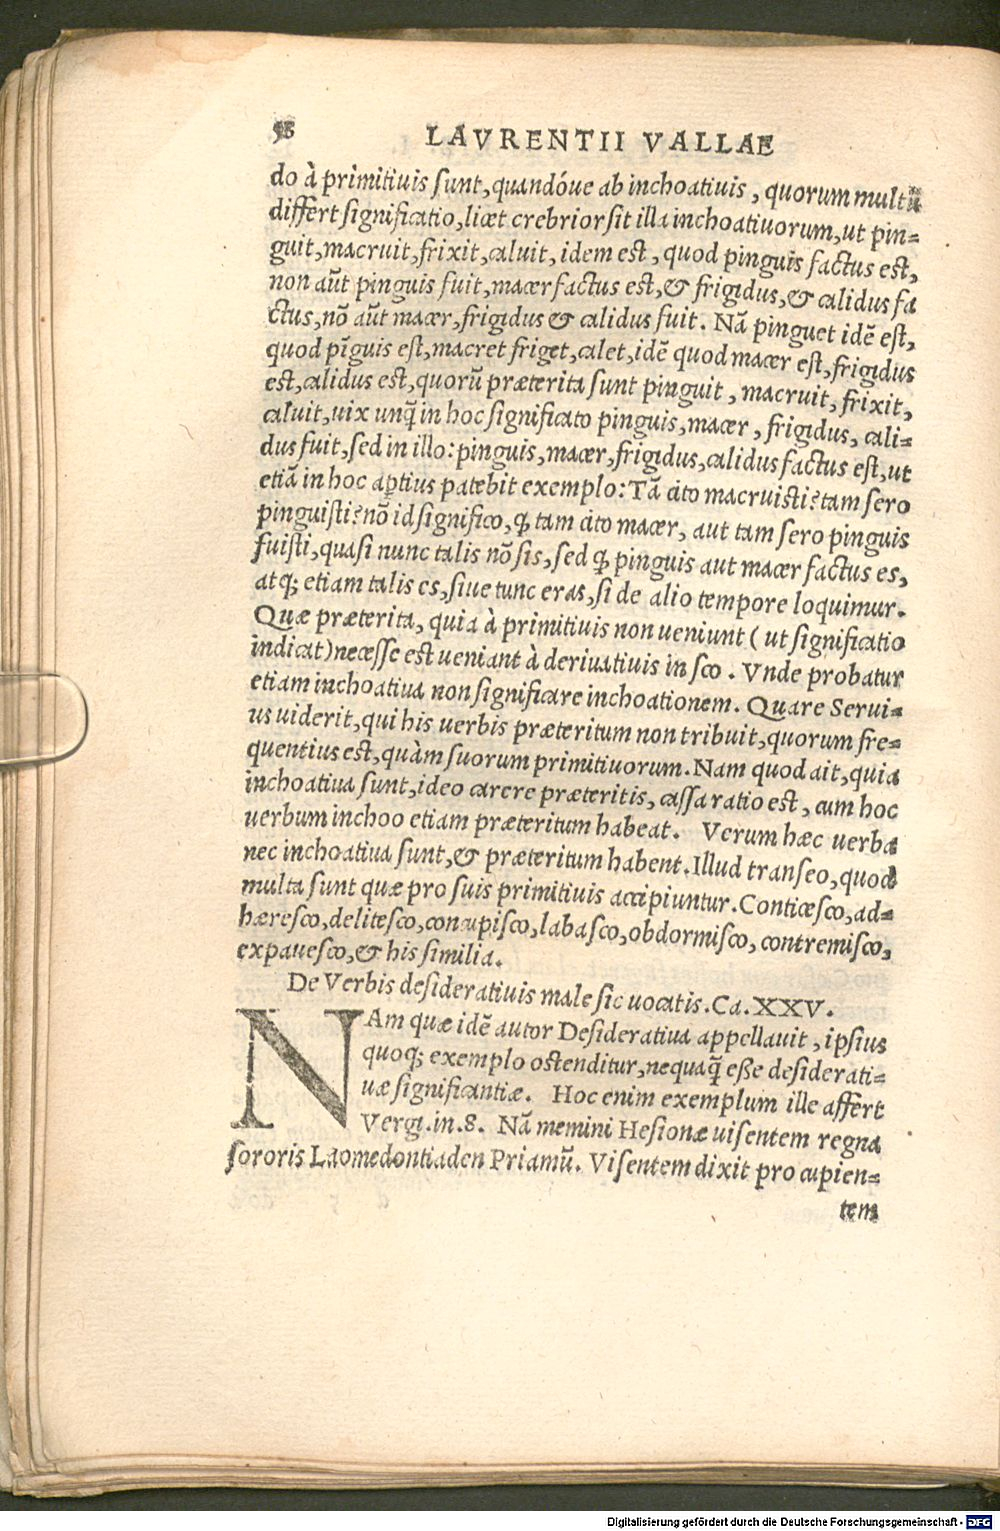 56 LAVRENTII VALLAE
do à primitiuis sunt, quandóue ab inchoatiuis, quorum multũ
differt significatio, licet crebrior sit illa inchoatiuorum, ut pin=
guit, macruit, frixit, caluit, idem est, quod pinguis factus est,
non aũt pinguis fuit, macer factus est, & frigidus, & calidus fa
ctus, nõ aũt macer, frigidus & calidus fuit. Nã pinguet idẽ est,
quod pĩguis est, macret friget, calet, idẽ quod macer est, frigidus
est, calidus est, quorũ præterita sunt pinguit, macruit, frixit,
caluit, uix unq̃ in hoc significato pinguis, macer, frigidus, cali=
dus fuit, sed in illo: pinguis, macer, frigidus, calidus factus est, ut
etiã in hoc aptius patebit exemplo: Tã cito macruisti? tam sero
pinguisti? nõ id significo, ꝙ tam cito macer, aut tam sero pinguis
fuisti, quasi nunc talis nõ sis, sed ꝙ pinguis aut macer factus es,
atq; etiam talis es, siue tunc eras, si de alio tempore loquimur.
Quæ præterita, quia à primitiuis non ueniunt (ut significatio
indicat) necesse est ueniant à deriuatiuis in sco. Vnde probatur
etiam inchoatiua non significare inchoationem. Quare Serui=
us uiderit, qui his uerbis præteritum non tribuit, quorum fre=
quentius est, quàm suorum primitiuorum. Nam quod ait, quia
inchoatiua sunt, ideo carere præteritis, cassa ratio est, cum hoc
uerbum inchoo etiam præteritum habeat. Verum hæc uerba
nec inchoatiua sunt, & præteritum habent. Illud transeo, quod
multa sunt quæ pro suis primitiuis accipiuntur. Conticesco, ad=
hæresco, delitesco, concupisco, labasco, obdormisco, contremisco,
expauesco, & his similia.
De Verbis desideratiuis male sic uocatis. Ca. XXV.
NAm quæ idẽ autor Desideratiua appellauit, ipsius
quoq; exemplo ostenditur, nequaq̃ eße desiderati=
uæ significantiæ. Hoc enim exemplum ille affert
Vergi. in. 8. Nã memini Hesionæ uisentem regna
sororis Laomedontiaden Priamũ. Visentem dixit pro cupien=
tem
Digitalisierung gefördert durch die Deutsche Forschungsgemeinschaft - DFG